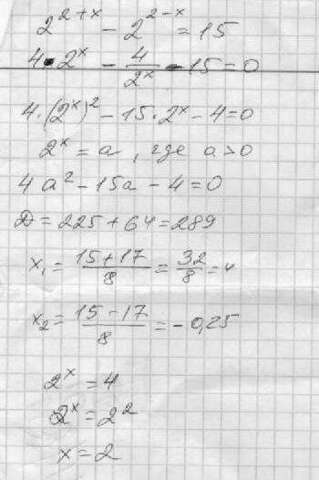 2^{2+x} - 2^{2-x} = 15
4·2^x - 4/2^x - 15 = 0
4·(2^x)^2 - 15·2^x - 4 = 0
2^x = a, где a > 0
4a^2 - 15a - 4 = 0
D = 225 + 64 = 289
x_1 = (15+17)/8 = 32/8 = 4
x_2 = (15-17)/8 = -0,25
2^x = 4
2^x = 2^2
x = 2